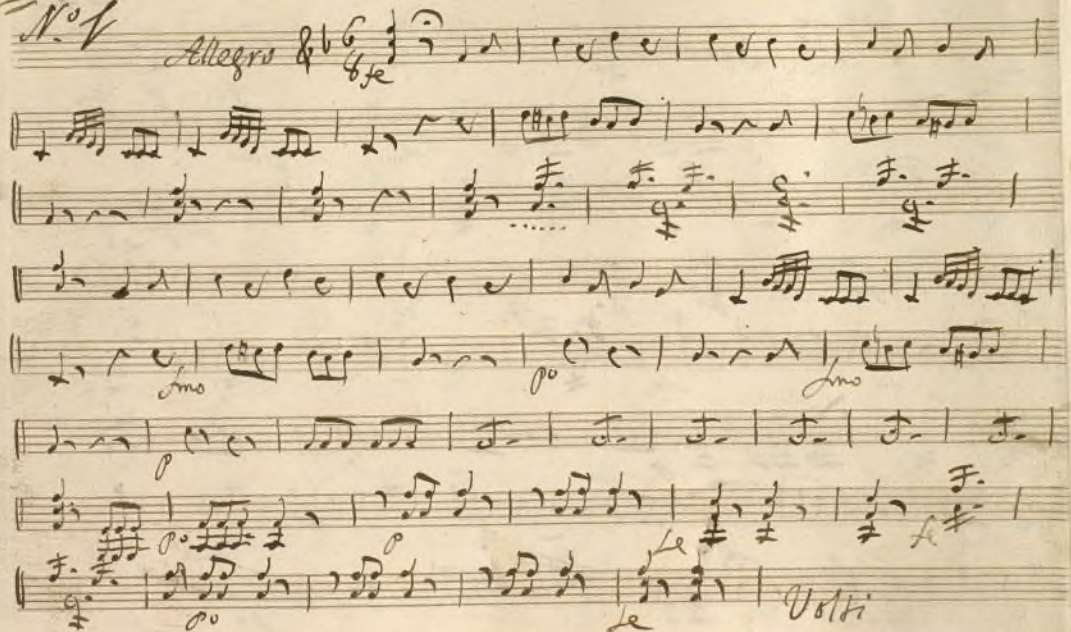 N.o 1
Allegro 6 8 fe
fmo po fmo
p
po p fe fe
po fe Volti